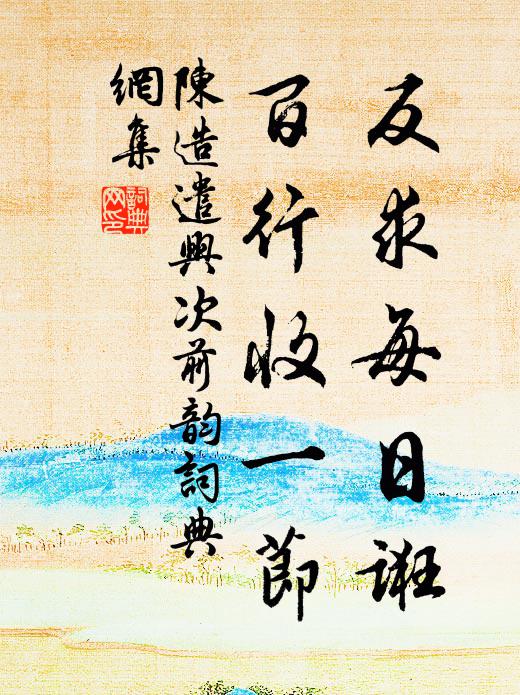 反求每日誑
百行收一節
陳造遣興次前韵詞典
網集
詞典網印